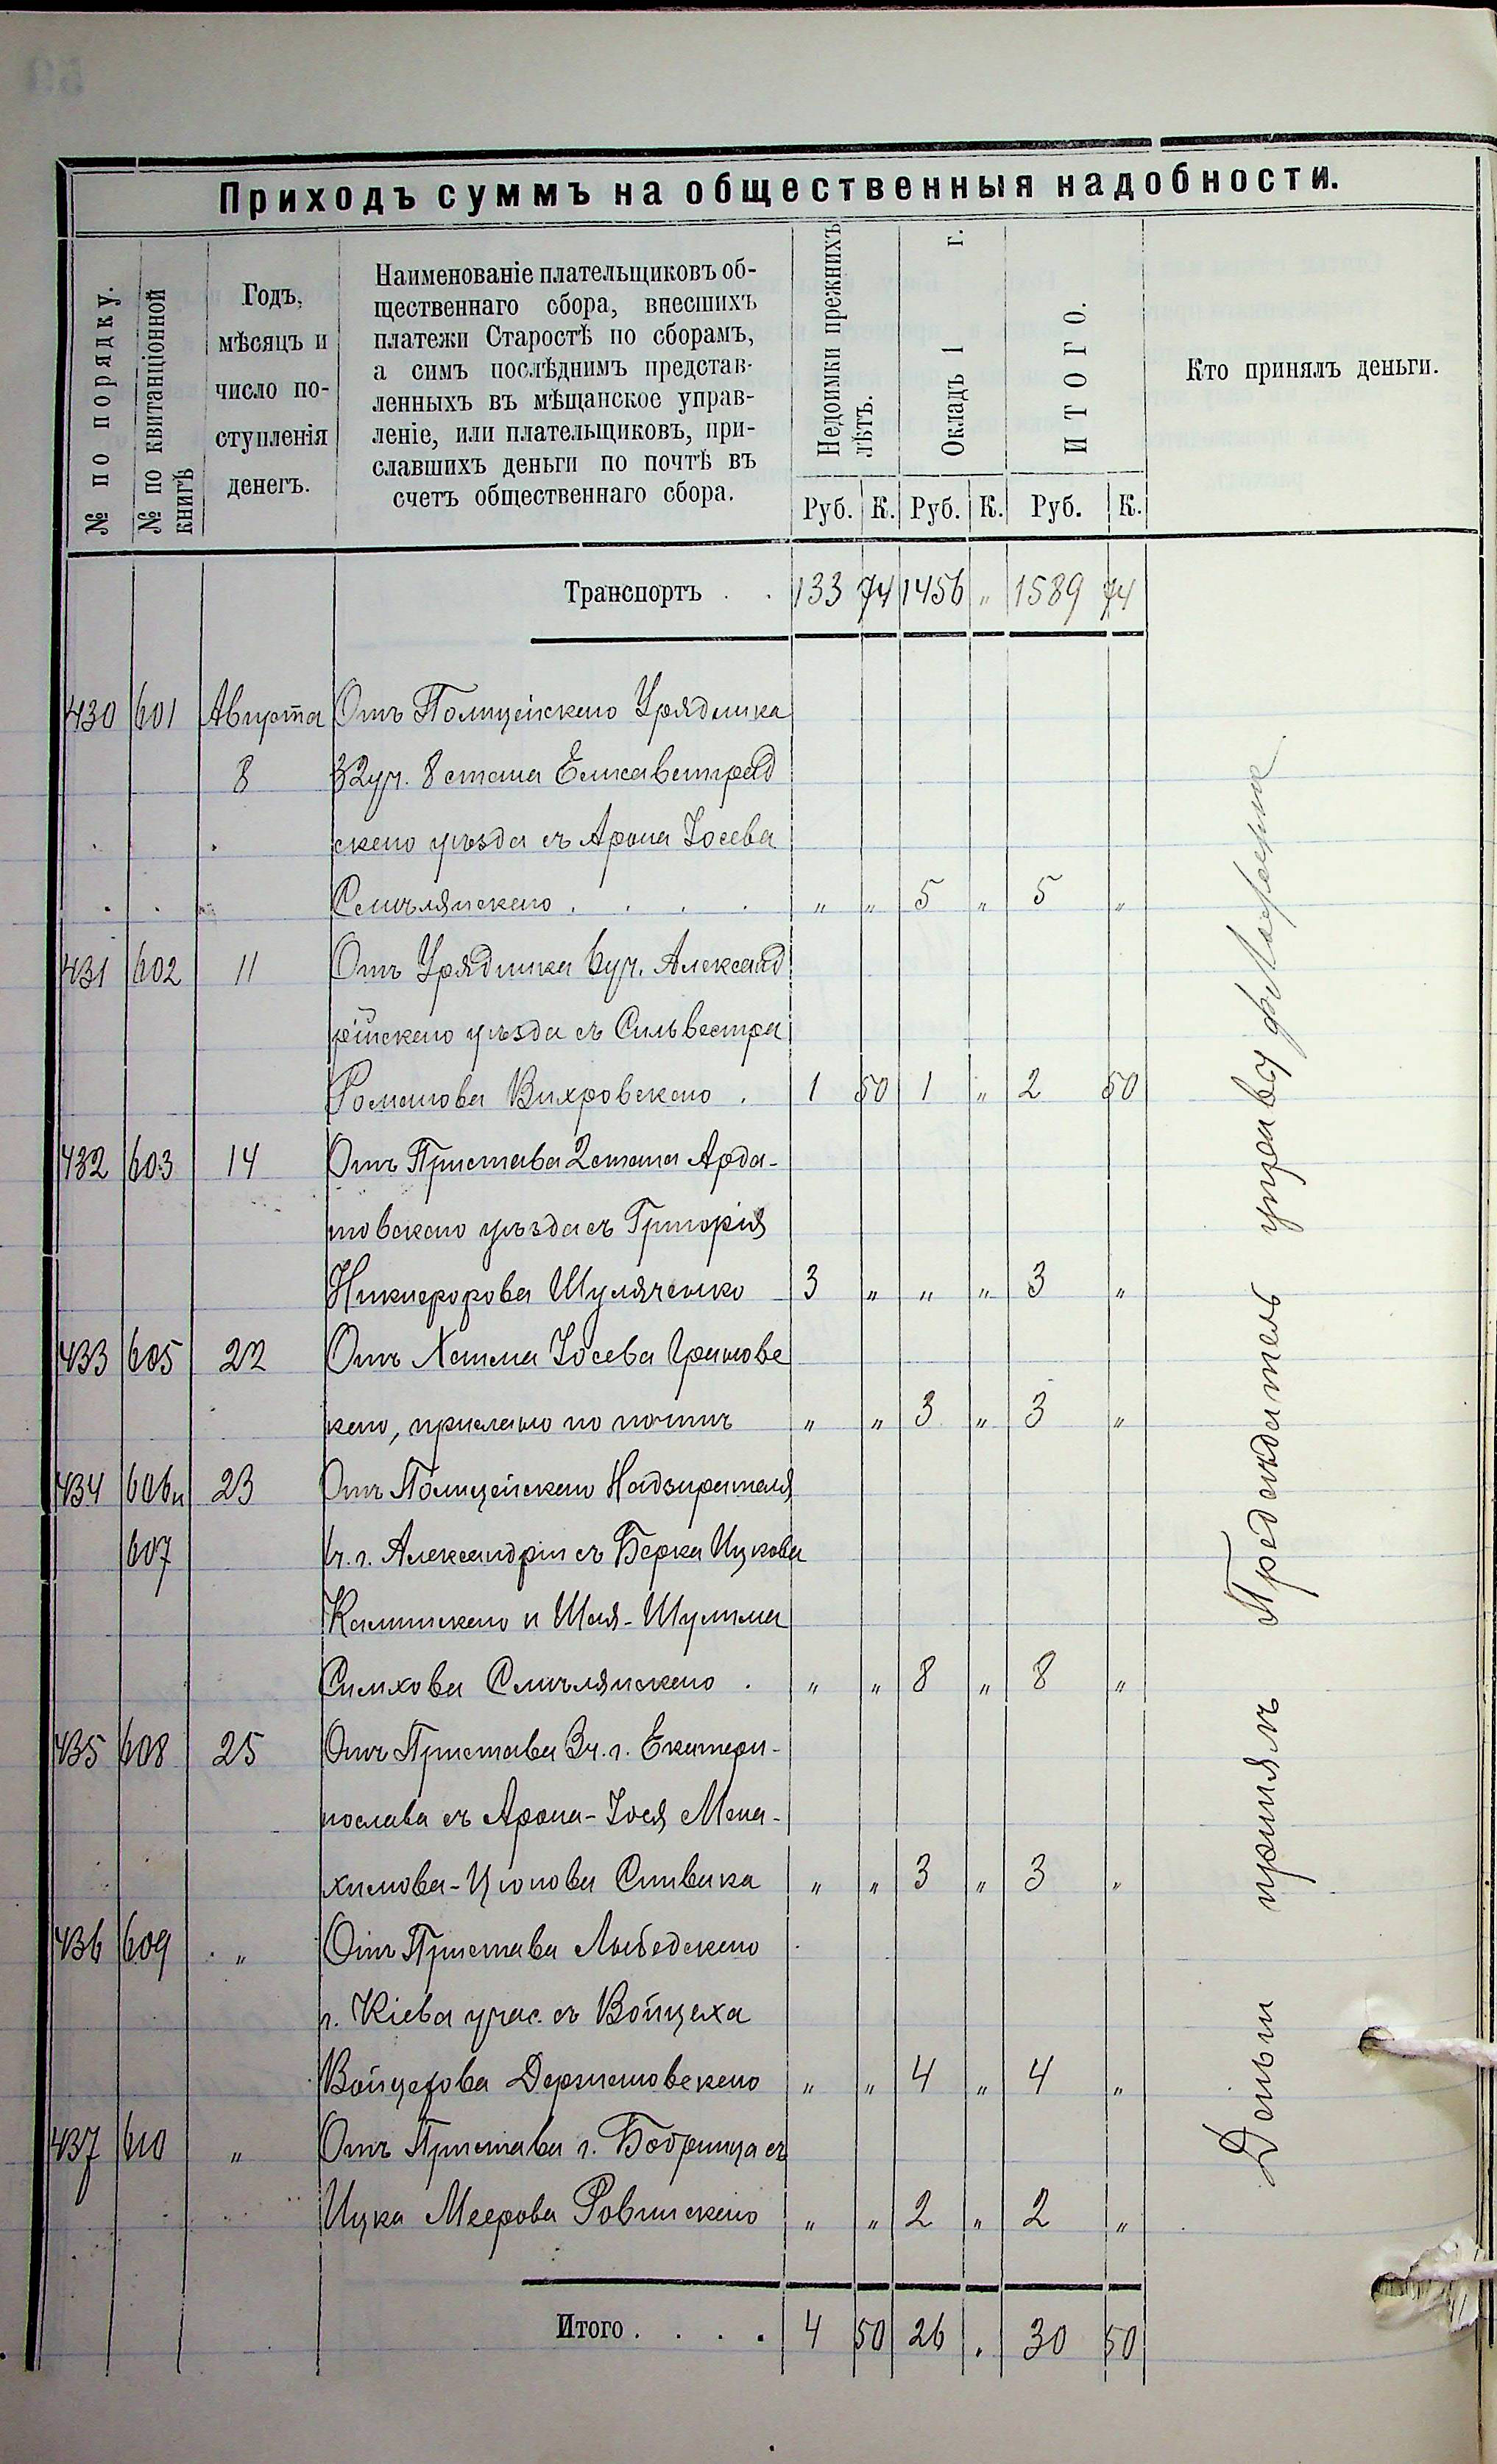 Приходъ суммъ на общественныя надобности.
№ по порядку.
№ по квитанціонной книгѣ
Годъ,
мѣсяцъ и
число по-
ступленія
денегъ.
Наименованіе плательщиковъ об-
щественнаго сбора, внесшихъ
платежи Старостѣ по сборамъ,
а симъ послѣднимъ представ-
ленныхъ въ мѣщанское управ-
леніе, или плательщиковъ, при-
славшихъ деньги по почтѣ въ
счетъ общественнаго сбора.
Недоимки прежнихъ
лѣтъ.
Окладъ 1 г.
ИТОГО.
Кто принялъ деньги.
Руб. К. Руб. К. Руб. К.
Транспортъ . . 133 74 1456 „ 1589 74
430 601 Августа Отъ Полицейскаго Урядника
8 32 уч. 8 стана Елисаветград
скаго уѣзда съ Арона Іосева
Смѣлянскаго . . . . „ „ 5 „ 5 „
431 602 11 Отъ Урядника 6 уч. Александ
рійскаго уѣзда съ Сильвестра
Романова Вихровскаго . 1 50 1 „ 2 50
432 603 14 Отъ Пристава 2 стана Арда-
товскаго уѣзда съ Григорія
Никифорова Шуляченко 3 „ „ „ 3 „
433 605 22 Отъ Хаима Іосева Грановс
каго, прислано по почтѣ „ „ 3 „ 3 „
434 606 и 23 Отъ Полицейскаго Надзирателя
607 1 ч. г. Александріи съ Берка Ицкова
Калинскаго и Шая-Шулима
Симхова Смѣлянскаго . „ „ 8 „ 8 „
435 608 25 Отъ Пристава 3 ч. г. Екатери-
нослава съ Арона-Іося Мена-
химова-Ционова Спивака „ „ 3 „ 3 „
436 609 „ Отъ Пристава Лыбедскаго
г. Кіева учас. съ Войцеха
Войцехова Держановскаго „ „ 4 „ 4 „
437 610 „ Отъ Пристава г. Бобринца съ
Ицка Меерова Ровинскаго „ „ 2 „ 2 „
Итого . . . . 4 50 26 . 30 50
Деньги принялъ Предсѣдатель управы